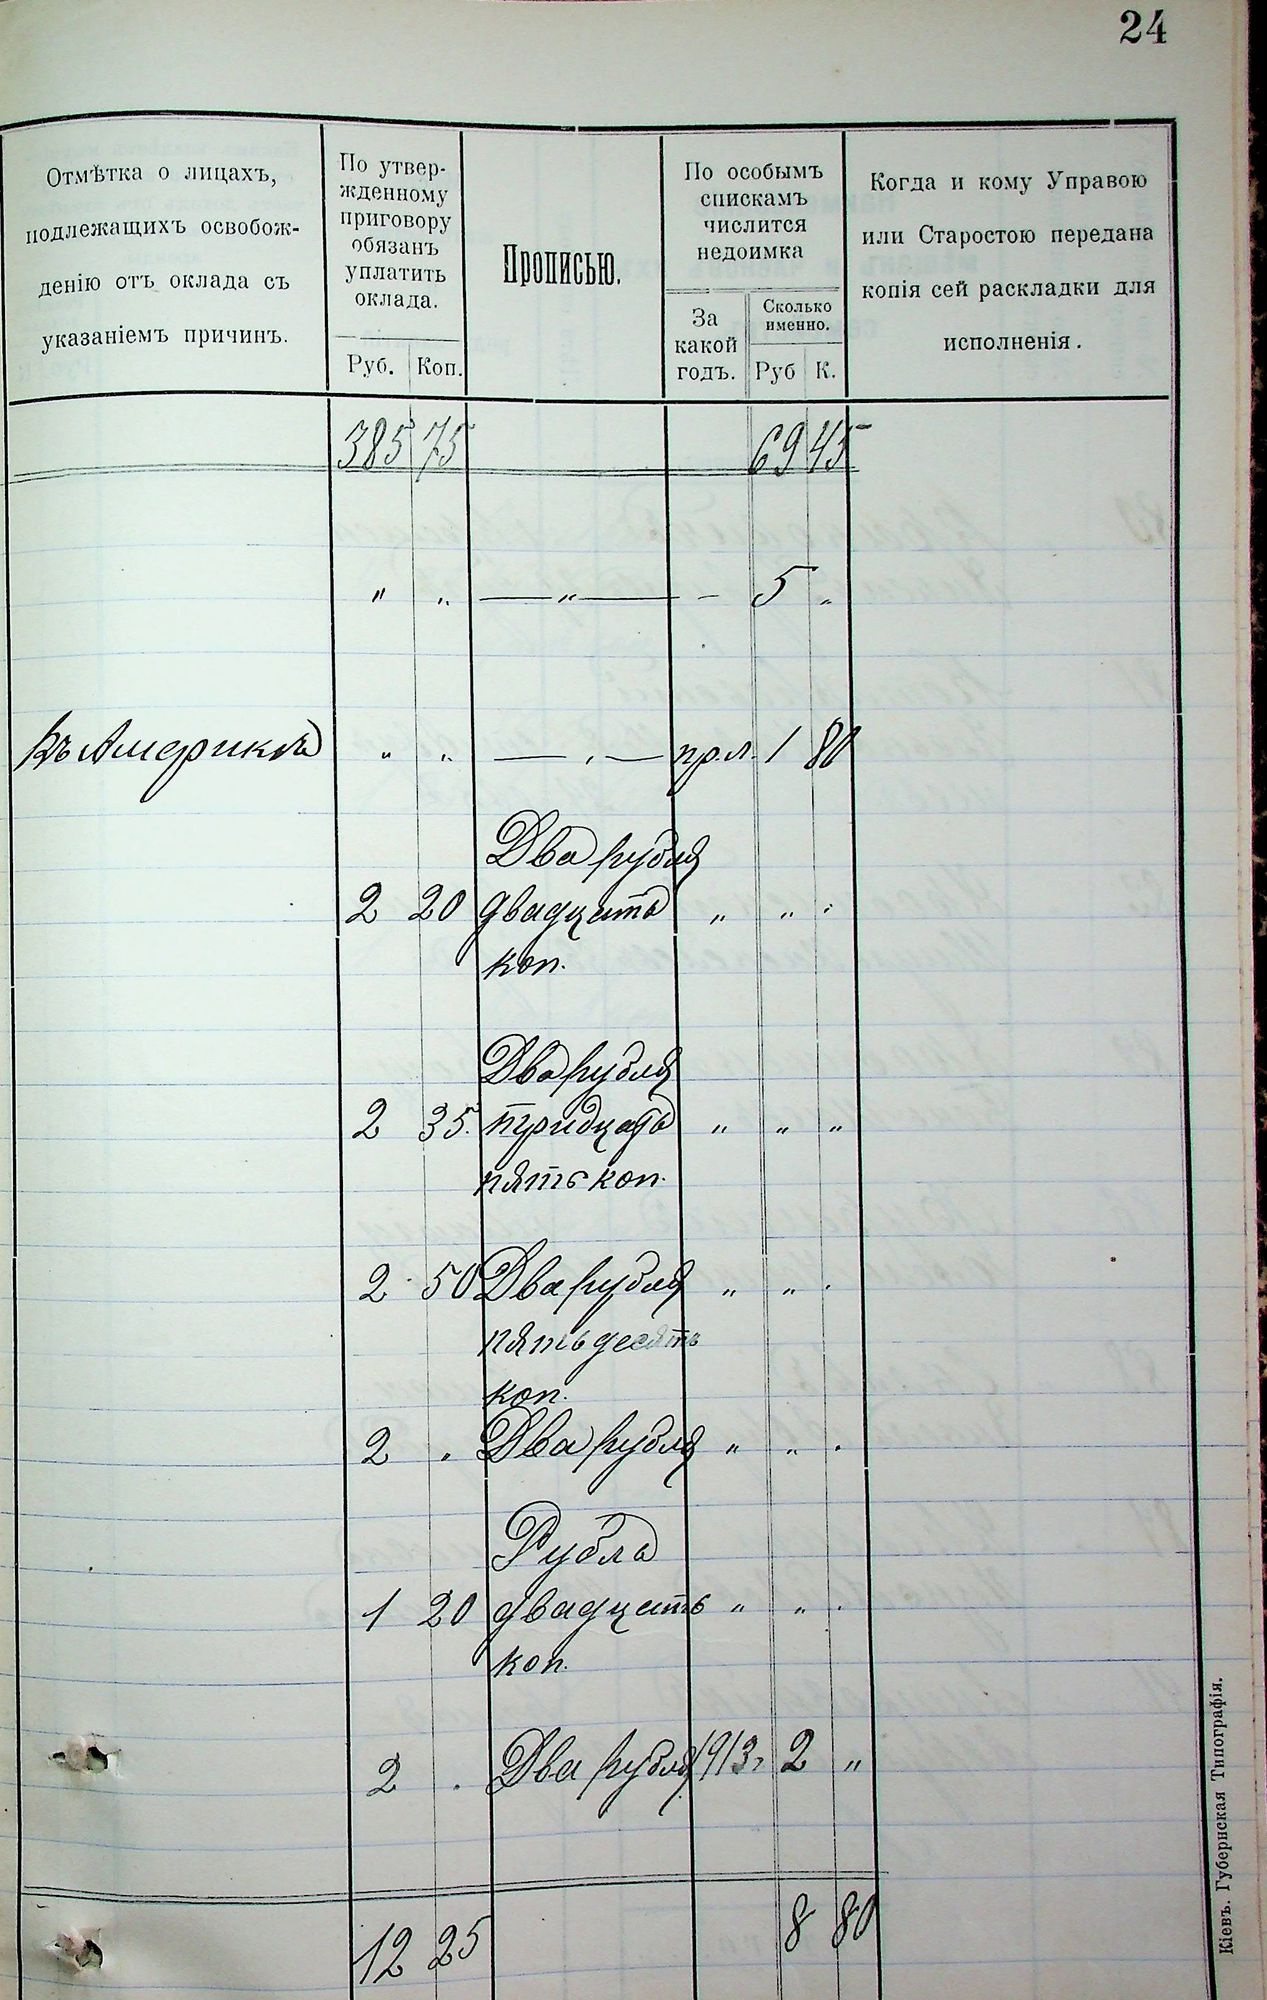 24
Отмѣтка о лицахъ,
подлежащихъ освобож-
денію отъ оклада съ
указаніемъ причинъ.
По утвер-
жденному
приговору
обязанъ
уплатить
оклада.
Руб. Коп.
Прописью.
По особымъ
спискамъ
числится
недоимка
За
какой
годъ.
Сколько
именно.
Руб К.
Когда и кому Управою
или Старостою передана
копія сей раскладки для
исполненія.
385 75 69 45
" " — " — - 5 "
Въ Америкѣ " " — " — пр.л. 1 80
Два рубля
2 20 двадцать " " "
коп.
Два рубля
2 35 тридцать " " "
пять коп.
2 50 Два рубля " " "
пятьдесятъ
коп.
2 " Два рубля " " "
Рубль
1 20 двадцать " " "
коп.
2 " Два рубля 1913 г. 2 "
12 25 8 80
Кіевъ. Губернская Типографія.